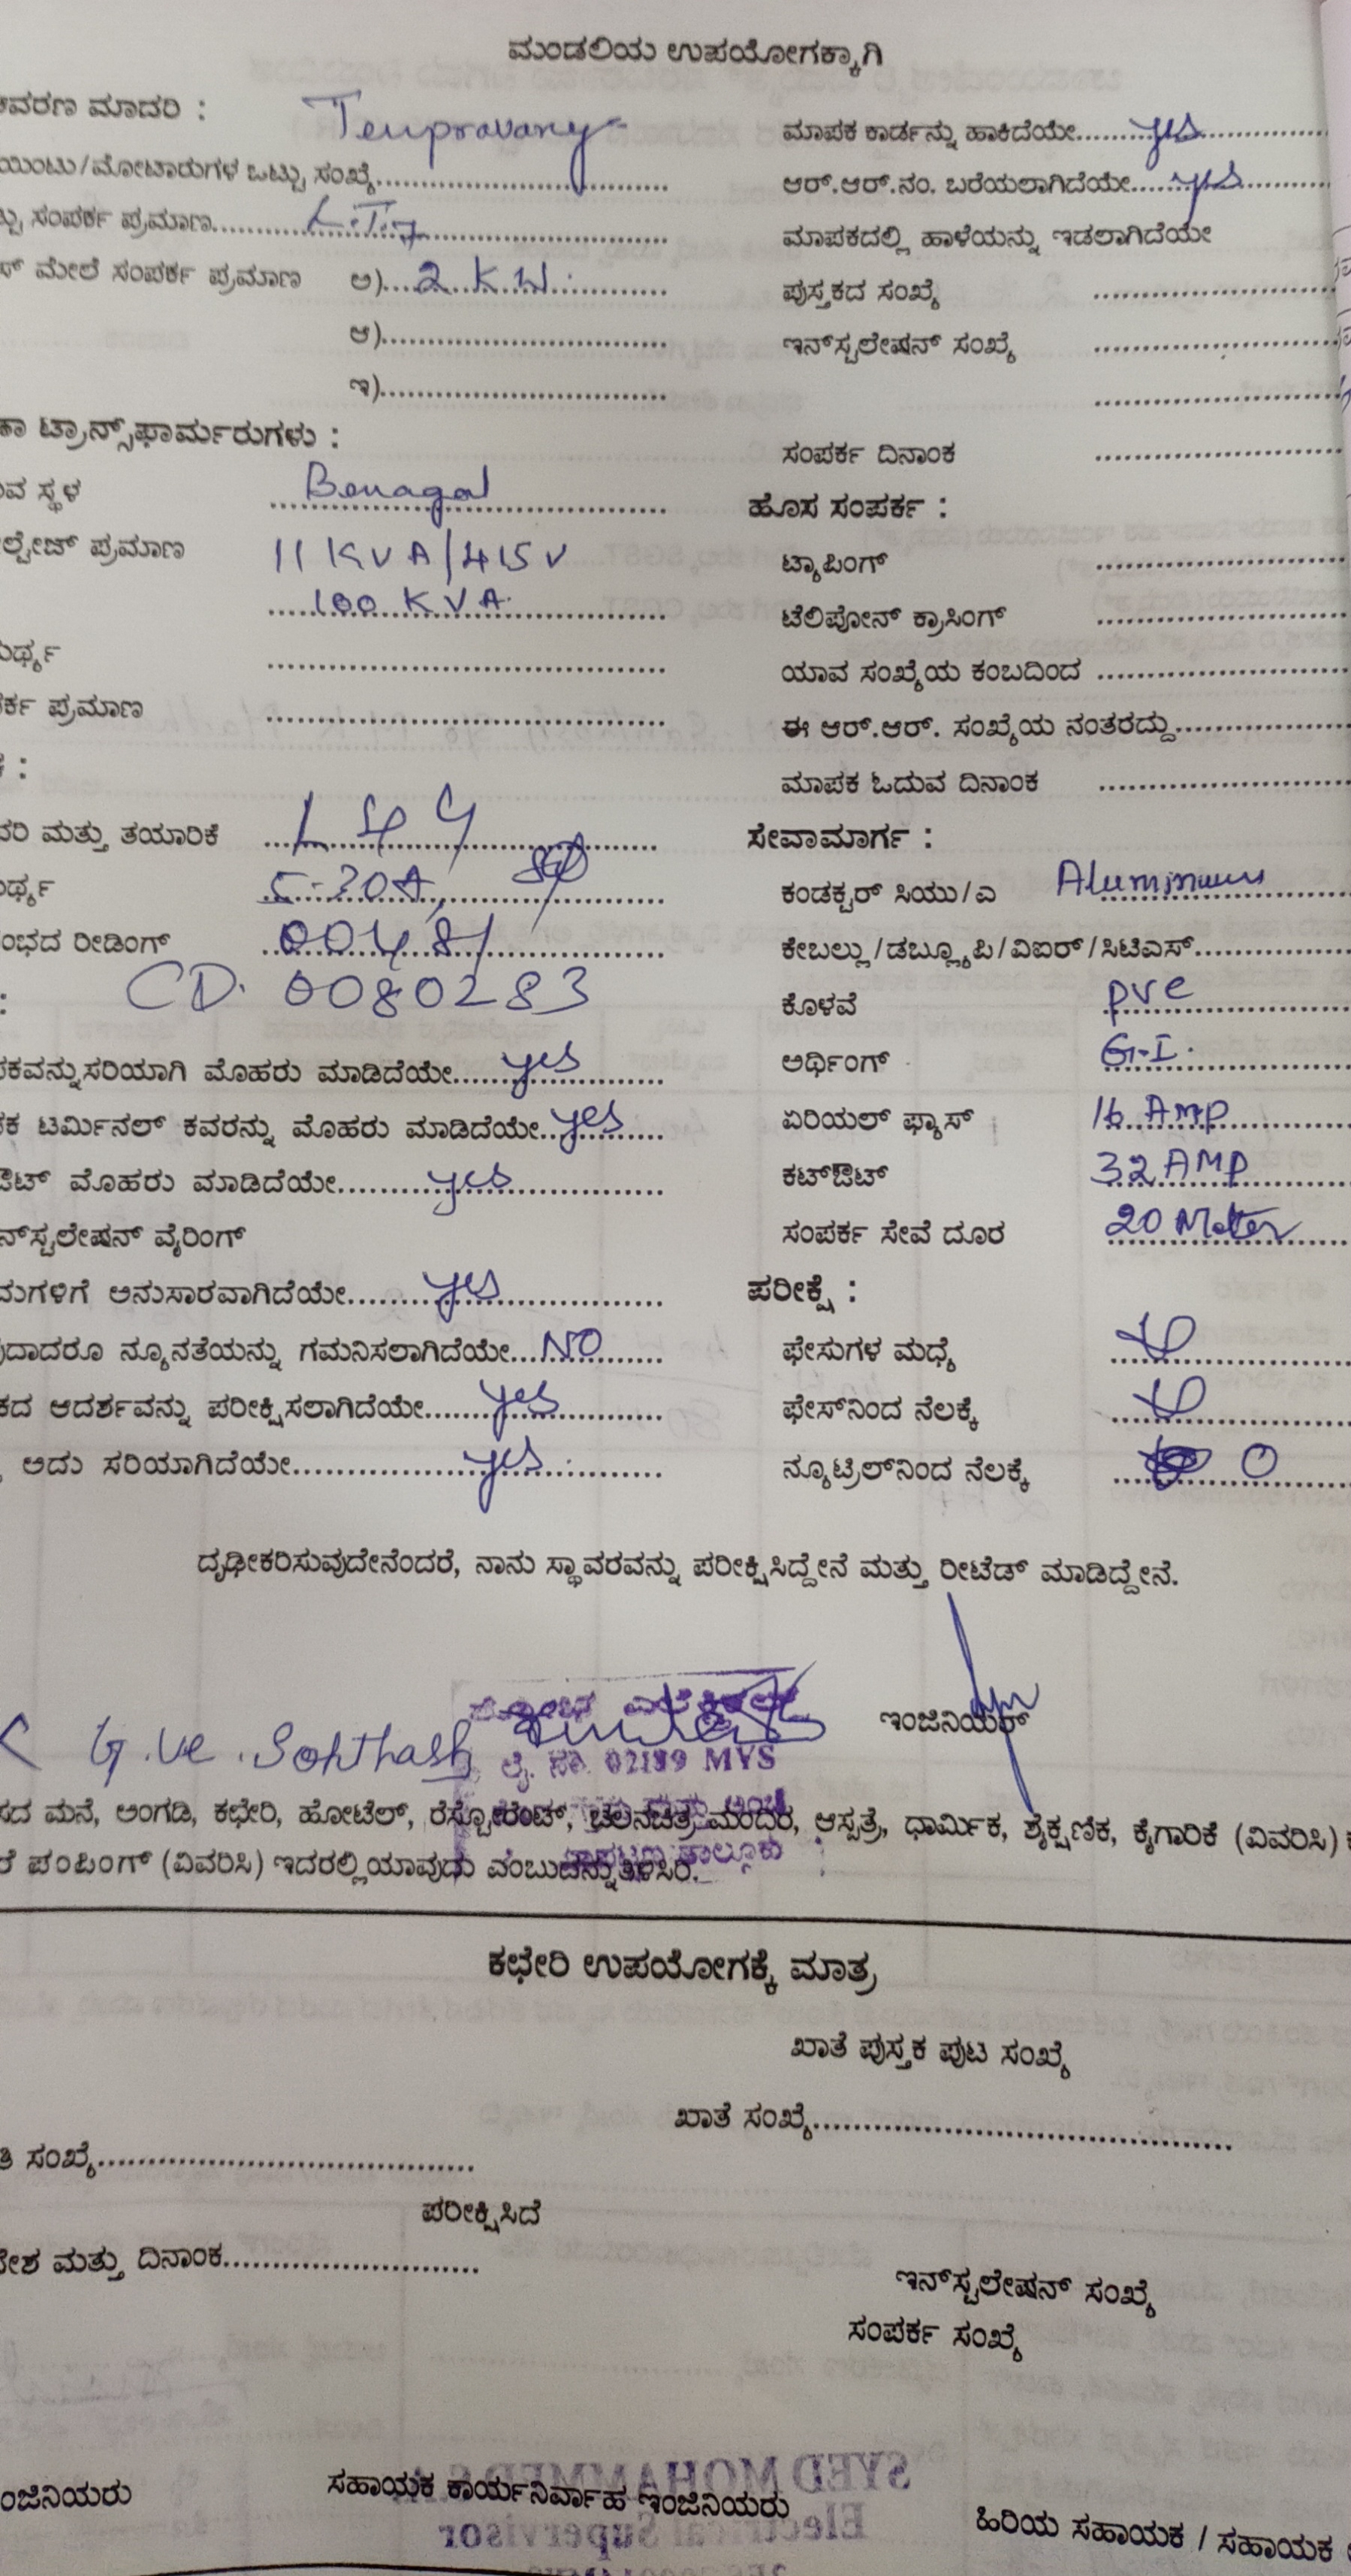 ಮಂಡಲಿಯ ಉಪಯೋಗಕ್ಕಾಗಿ
ಆವರಣ ಮಾದರಿ :
ಯಿಂಟು/ಮೋಟಾರುಗಳ ಒಟ್ಟು ಸಂಖ್ಯೆ
ಟ್ಟು ಸಂಪರ್ಕ ಪ್ರಮಾಣ
ಸ್ ಮೇಲೆ ಸಂಪರ್ಕ ಪ್ರಮಾಣ ಅ) 2 K.W.
ಆ)
ಇ)
ಕಾ ಟ್ರಾನ್ಸ್‌ಫಾರ್ಮರುಗಳು :
ವ ಸ್ಥಳ Benagal
ಲ್ಟೇಜ್ ಪ್ರಮಾಣ 11 KVA/415 V
100 KVA.
ರ್ಥ್ಯ
ರ್ಕ ಪ್ರಮಾಣ
ದರಿ ಮತ್ತು ತಯಾರಿಕೆ
ರ್ಥ್ಯ 5-30A,
ಂಭದ ರೀಡಿಂಗ್
CD. 0080283
ಪಕವನ್ನುಸರಿಯಾಗಿ ಮೊಹರು ಮಾಡಿದೆಯೇ yes
ಕ ಟರ್ಮಿನಲ್ ಕವರನ್ನು ಮೊಹರು ಮಾಡಿದೆಯೇ yes
ಔಟ್ ಮೊಹರು ಮಾಡಿದೆಯೇ yes
ನ್‌ಸ್ಟಲೇಷನ್ ವೈರಿಂಗ್
ಮಗಳಿಗೆ ಅನುಸಾರವಾಗಿದೆಯೇ yes
ವುದಾದರೂ ನ್ಯೂನತೆಯನ್ನು ಗಮನಿಸಲಾಗಿದೆಯೇ NO
ಕದ ಆದರ್ಶವನ್ನು ಪರೀಕ್ಷಿಸಲಾಗಿದೆಯೇ yes
ಅದು ಸರಿಯಾಗಿದೆಯೇ yes
ಮಾಪಕ ಕಾರ್ಡನ್ನು ಹಾಕಿದೆಯೇ yes
ಆರ್.ಆರ್.ನಂ. ಬರೆಯಲಾಗಿದೆಯೇ yes
ಮಾಪಕದಲ್ಲಿ ಹಾಳೆಯನ್ನು ಇಡಲಾಗಿದೆಯೇ
ಪುಸ್ತಕದ ಸಂಖ್ಯೆ
ಇನ್‌ಸ್ಟಲೇಷನ್ ಸಂಖ್ಯೆ
ಸಂಪರ್ಕ ದಿನಾಂಕ
ಹೊಸ ಸಂಪರ್ಕ :
ಟ್ಯಾಪಿಂಗ್
ಟೆಲಿಪೋನ್ ಕ್ರಾಸಿಂಗ್
ಯಾವ ಸಂಖ್ಯೆಯ ಕಂಬದಿಂದ
ಈ ಆರ್.ಆರ್. ಸಂಖ್ಯೆಯ ನಂತರದ್ದು
ಮಾಪಕ ಓದುವ ದಿನಾಂಕ
ಸೇವಾಮಾರ್ಗ :
ಕಂಡಕ್ಟರ್ ಸಿಯು/ಎ Aluminium
ಕೇಬಲ್ಲು/ಡಬ್ಲ್ಯೂಪಿ/ವಿಐರ್/ಸಿಟಿಎಸ್
ಕೊಳವೆ pvc
ಅರ್ಥಿಂಗ್ G.I.
ಏರಿಯಲ್ ಫ್ಯೂಸ್ 16 Amp
ಕಟ್‌ಔಟ್ 32 AMP
ಸಂಪರ್ಕ ಸೇವೆ ದೂರ 20 Meter
ಪರೀಕ್ಷೆ :
ಫೇಸುಗಳ ಮಧ್ಯೆ
ಫೇಸ್‌ನಿಂದ ನೆಲಕ್ಕೆ
ನ್ಯೂಟ್ರಲ್‌ನಿಂದ ನೆಲಕ್ಕೆ 0
ದೃಢೀಕರಿಸುವುದೇನೆಂದರೆ, ನಾನು ಸ್ಥಾವರವನ್ನು ಪರೀಕ್ಷಿಸಿದ್ದೇನೆ ಮತ್ತು ರೀಟೆಡ್ ಮಾಡಿದ್ದೇನೆ.
ಇಂಜಿನಿಯರ್
ಲೈ. ನಂ. 02199 MYS
ಸದ ಮನೆ, ಅಂಗಡಿ, ಕಛೇರಿ, ಹೋಟೆಲ್, ರೆಸ್ಟೋರೆಂಟ್, ಚಲನಚಿತ್ರ ಮಂದಿರ, ಆಸ್ಪತ್ರೆ, ಧಾರ್ಮಿಕ, ಶೈಕ್ಷಣಿಕ, ಕೈಗಾರಿಕೆ (ವಿವರಿಸಿ)
ರೆ ಪಂಪಿಂಗ್ (ವಿವರಿಸಿ) ಇದರಲ್ಲಿಯಾವುದು ಎಂಬುದನ್ನುತಿಳಿಸಿರಿ.
ಕಛೇರಿ ಉಪಯೋಗಕ್ಕೆ ಮಾತ್ರ
ಖಾತೆ ಪುಸ್ತಕ ಪುಟ ಸಂಖ್ಯೆ
ಖಾತೆ ಸಂಖ್ಯೆ
ತಿ ಸಂಖ್ಯೆ
ಪರೀಕ್ಷಿಸಿದೆ
ದೇಶ ಮತ್ತು ದಿನಾಂಕ
ಇನ್‌ಸ್ಟಲೇಷನ್ ಸಂಖ್ಯೆ
ಸಂಪರ್ಕ ಸಂಖ್ಯೆ
ಂಜಿನಿಯರು
ಸಹಾಯಕ ಕಾರ್ಯನಿರ್ವಾಹ ಇಂಜಿನಿಯರು
ಹಿರಿಯ ಸಹಾಯಕ / ಸಹಾಯಕ